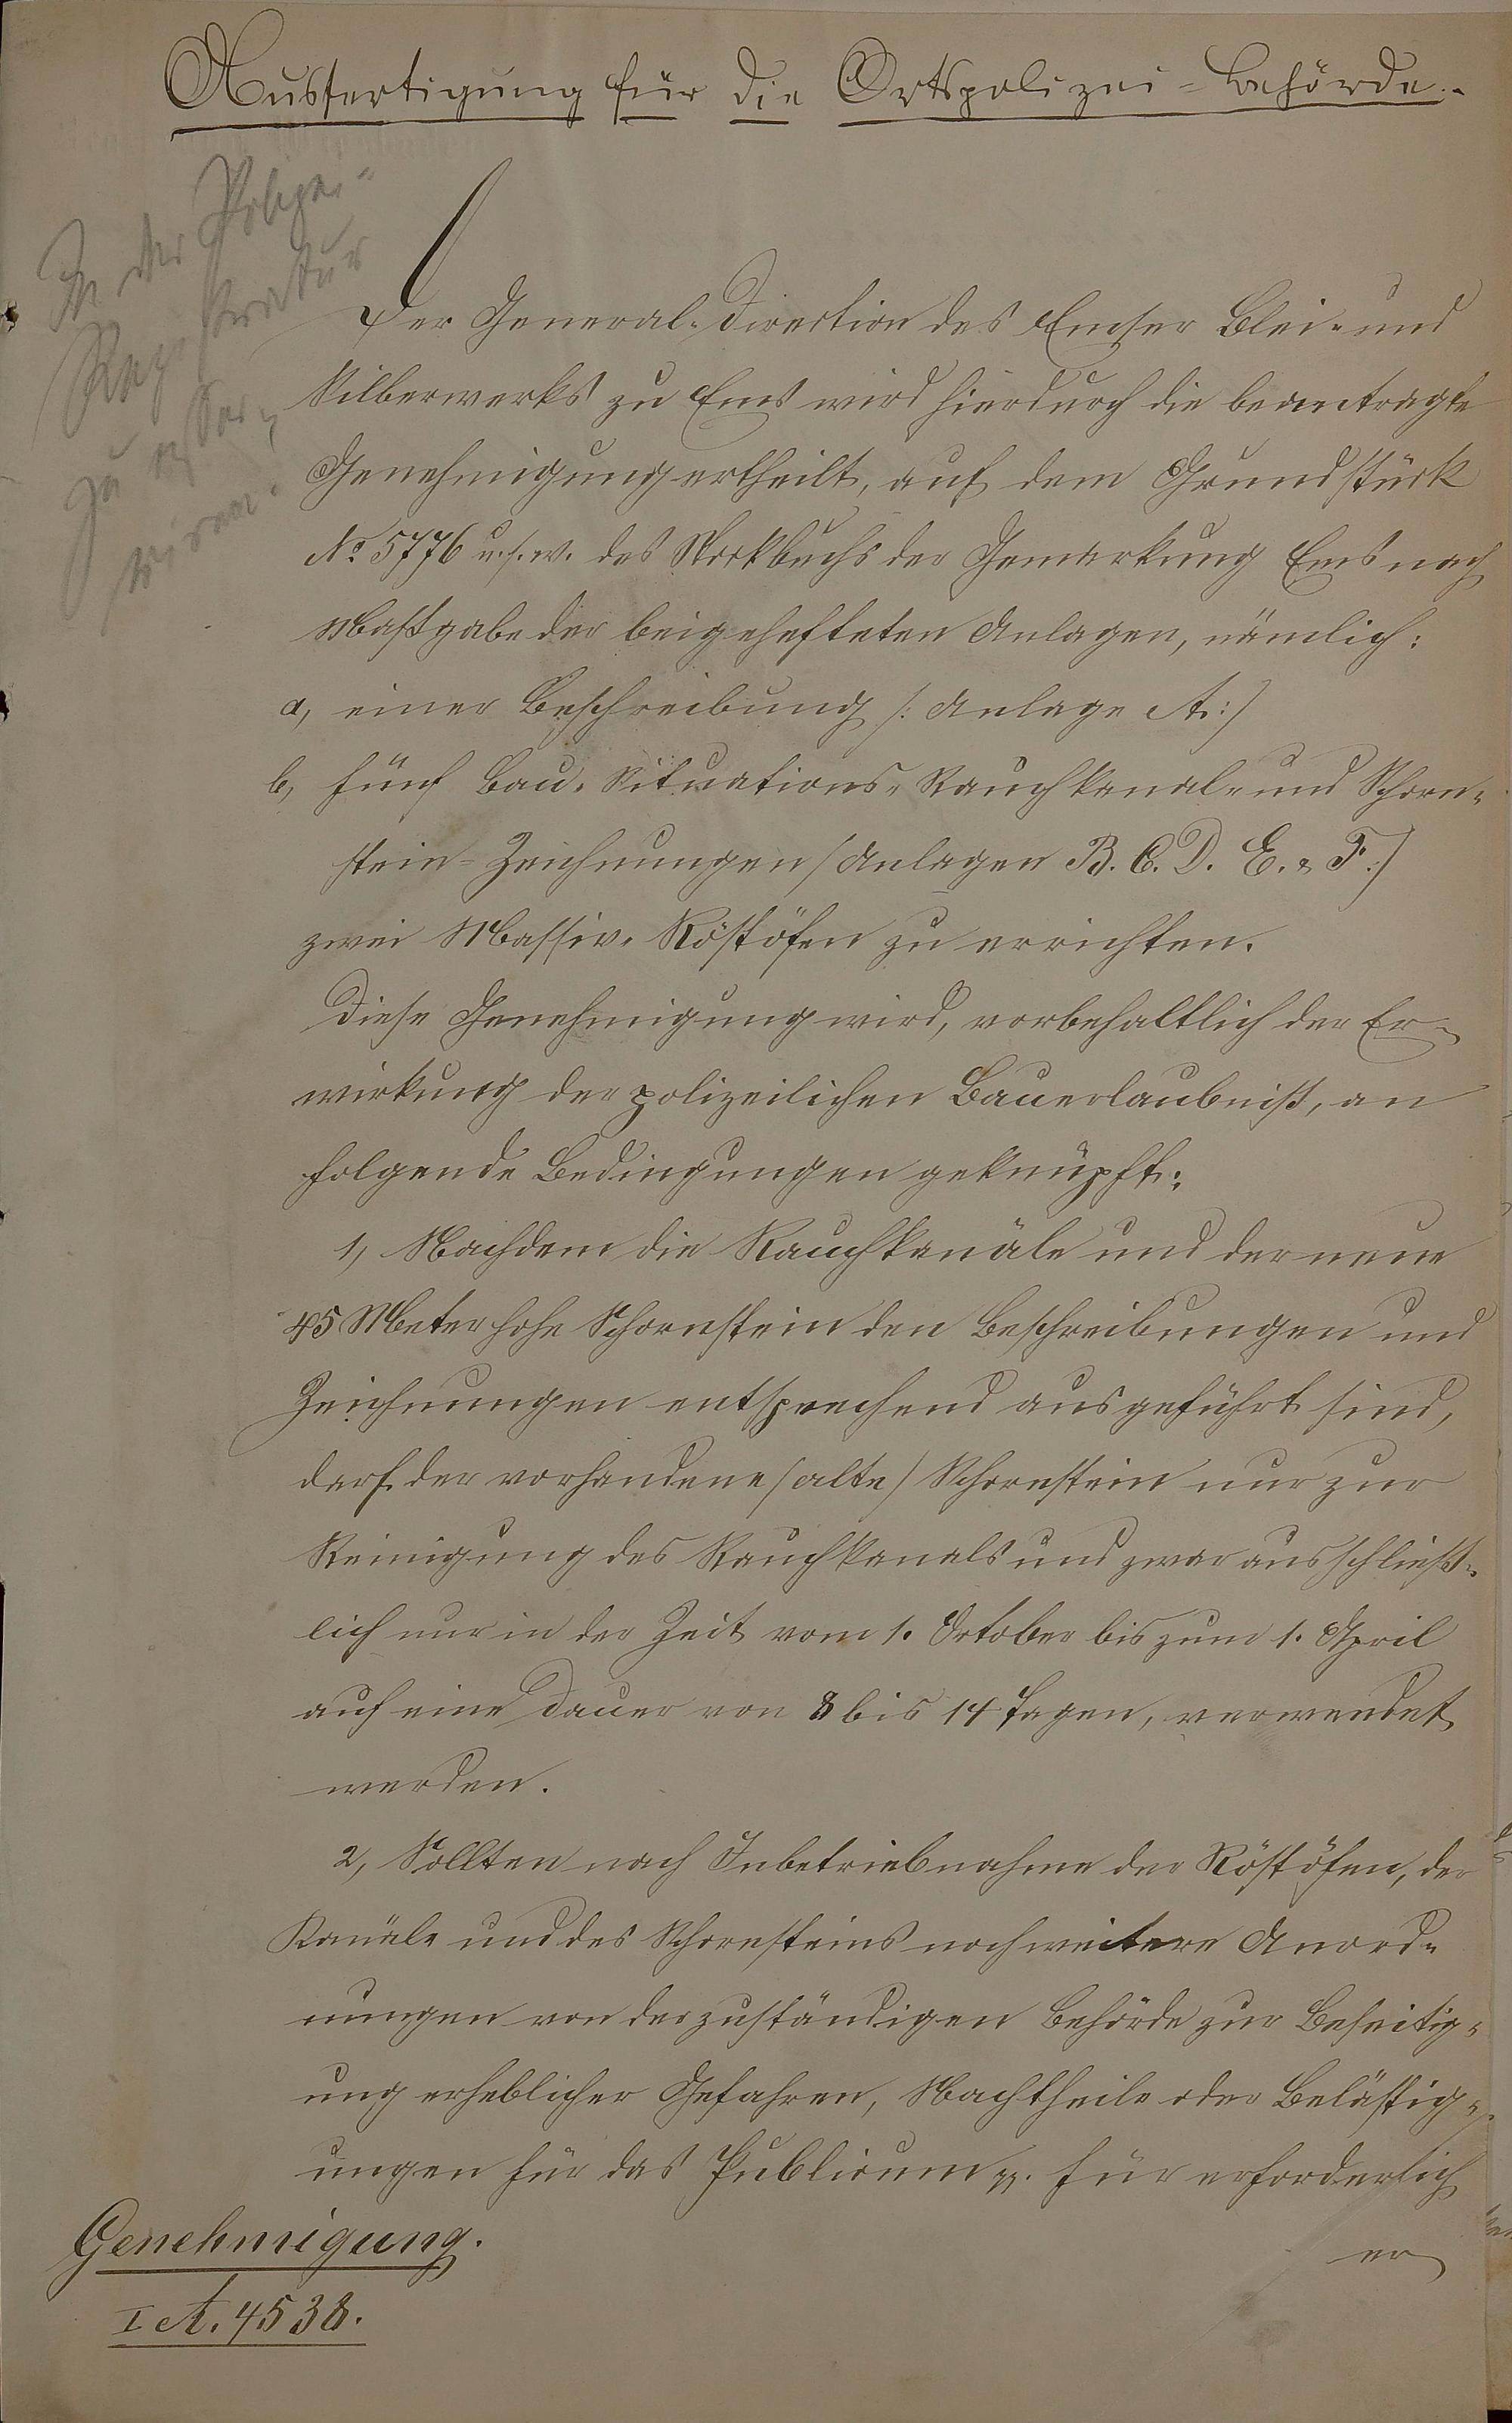 Ausfertigung für die Ortspolizei-Behörde.
In der Polizei-
Registratur
zu reser-
viren.
Der General-Direction des Emser Blei- und
Silberwerks zu Ems wird hierdurch die beantragte
Genehmigung ertheilt, auf dem Grundstück
No 5776 u.s.w. des Stockbuchs der Gemarkung Ems nach
Maßgabe der beigehefteten Anlagen, nämlich:
a, einer Beschreibung /: Anlage A :/
b, fünf Bau- Situations- Rauchkanal- und Schorn-
stein-Zeichnungen / Anlagen B. C. D. E. & F. :/
zwei Massiv-Röstöfen zu errichten.
Diese Genehmigung wird, vorbehaltlich der Er-
wirkung der polizeilichen Bauerlaubniß, an
folgende Bedingungen geknüpft:
1, Nachdem die Rauchkanäle und der neue
45 Meter hohe Schornstein den Beschreibungen und
Zeichnungen entsprechend ausgeführt sind,
darf der vorhandene /alte/ Schornstein nur zur
Reinigung des Rauchkanals und zwar ausschließ-
lich nur in der Zeit vom 1. October bis zum 1. April
auf eine Dauer von 8 bis 14 Tagen, verwendet
werden.
2, Sollten nach Inbetriebnahme der Röstöfen, der
Kanäle und des Schornsteins noch weitere Anord-
nungen von der zuständigen Behörde zur Beseitig-
ung erheblicher Gefahren, Nachtheile oder Belästig-
ungen für das Publicum pp. für erforderlich
er
Genehmigung.
I A. 4538.